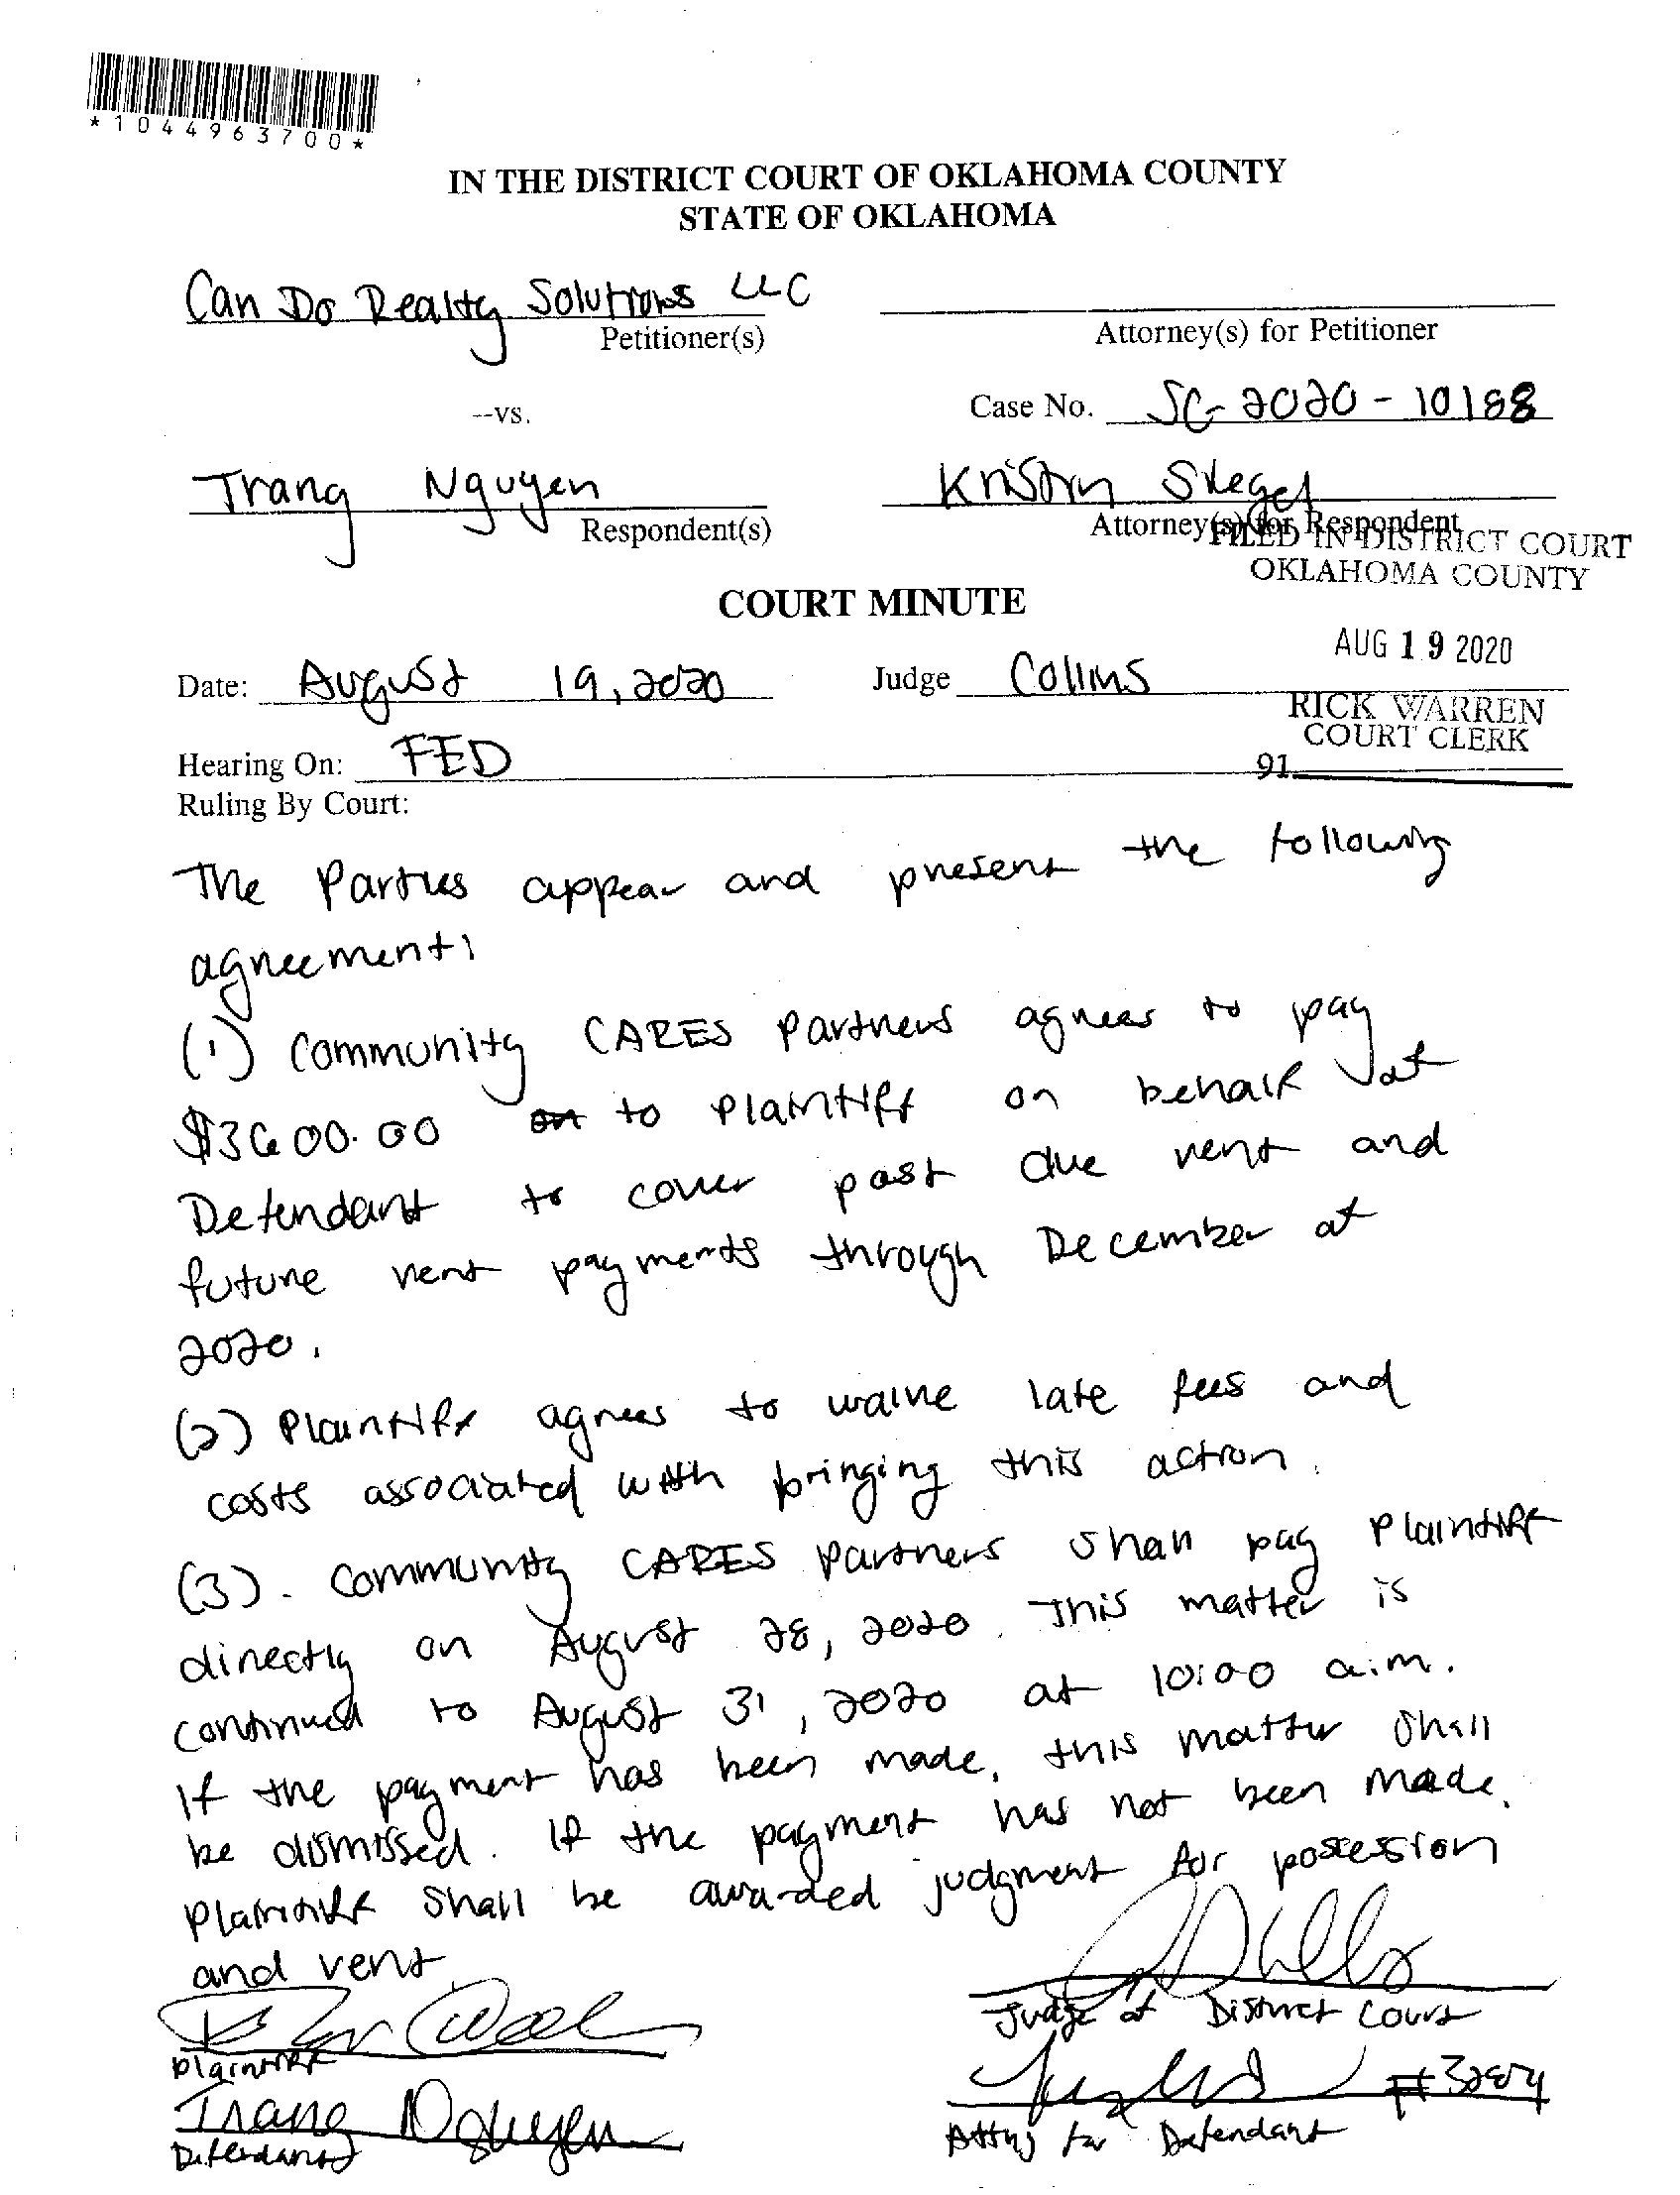 *1044963700*
IN THE DISTRICT COURT OF OKLAHOMA COUNTY
STATE OF OKLAHOMA
Can Do Realty Solutions LLC
Petitioner(s)
Attorney(s) for Petitioner
--vs.
Case No. SC-2020-10188
Trang Nguyen
Respondent(s)
Kristin Siegel
Attorney(s) for Respondent
FILED IN DISTRICT COURT
OKLAHOMA COUNTY
COURT MINUTE
AUG 19 2020
Date: August 19, 2020 Judge Collins
RICK WARREN
COURT CLERK
Hearing On: FED
91
Ruling By Court:
The Parties appear and present the following
agreement:
(1) Community CARES Partners agrees to pay
$3600.00 on to Plaintiff on behalf of
Defendant to cover past due rent and
future rent payments through December of
2020.
(2) Plaintiff agrees to waive late fees and
costs associated with bringing this action.
(3). Community CARES Partners shall pay Plaintiff
directly on August 28, 2020. This matter is
continued to August 31, 2020 at 10:00 a.m.
If the payment has been made, this matter shall
be dismissed. If the payment has not been made,
Plaintiff shall be awarded judgment for possession
and rent
Judge of District Court
Plaintiff
Trang Nguyen
Defendant
Attny for Defendant